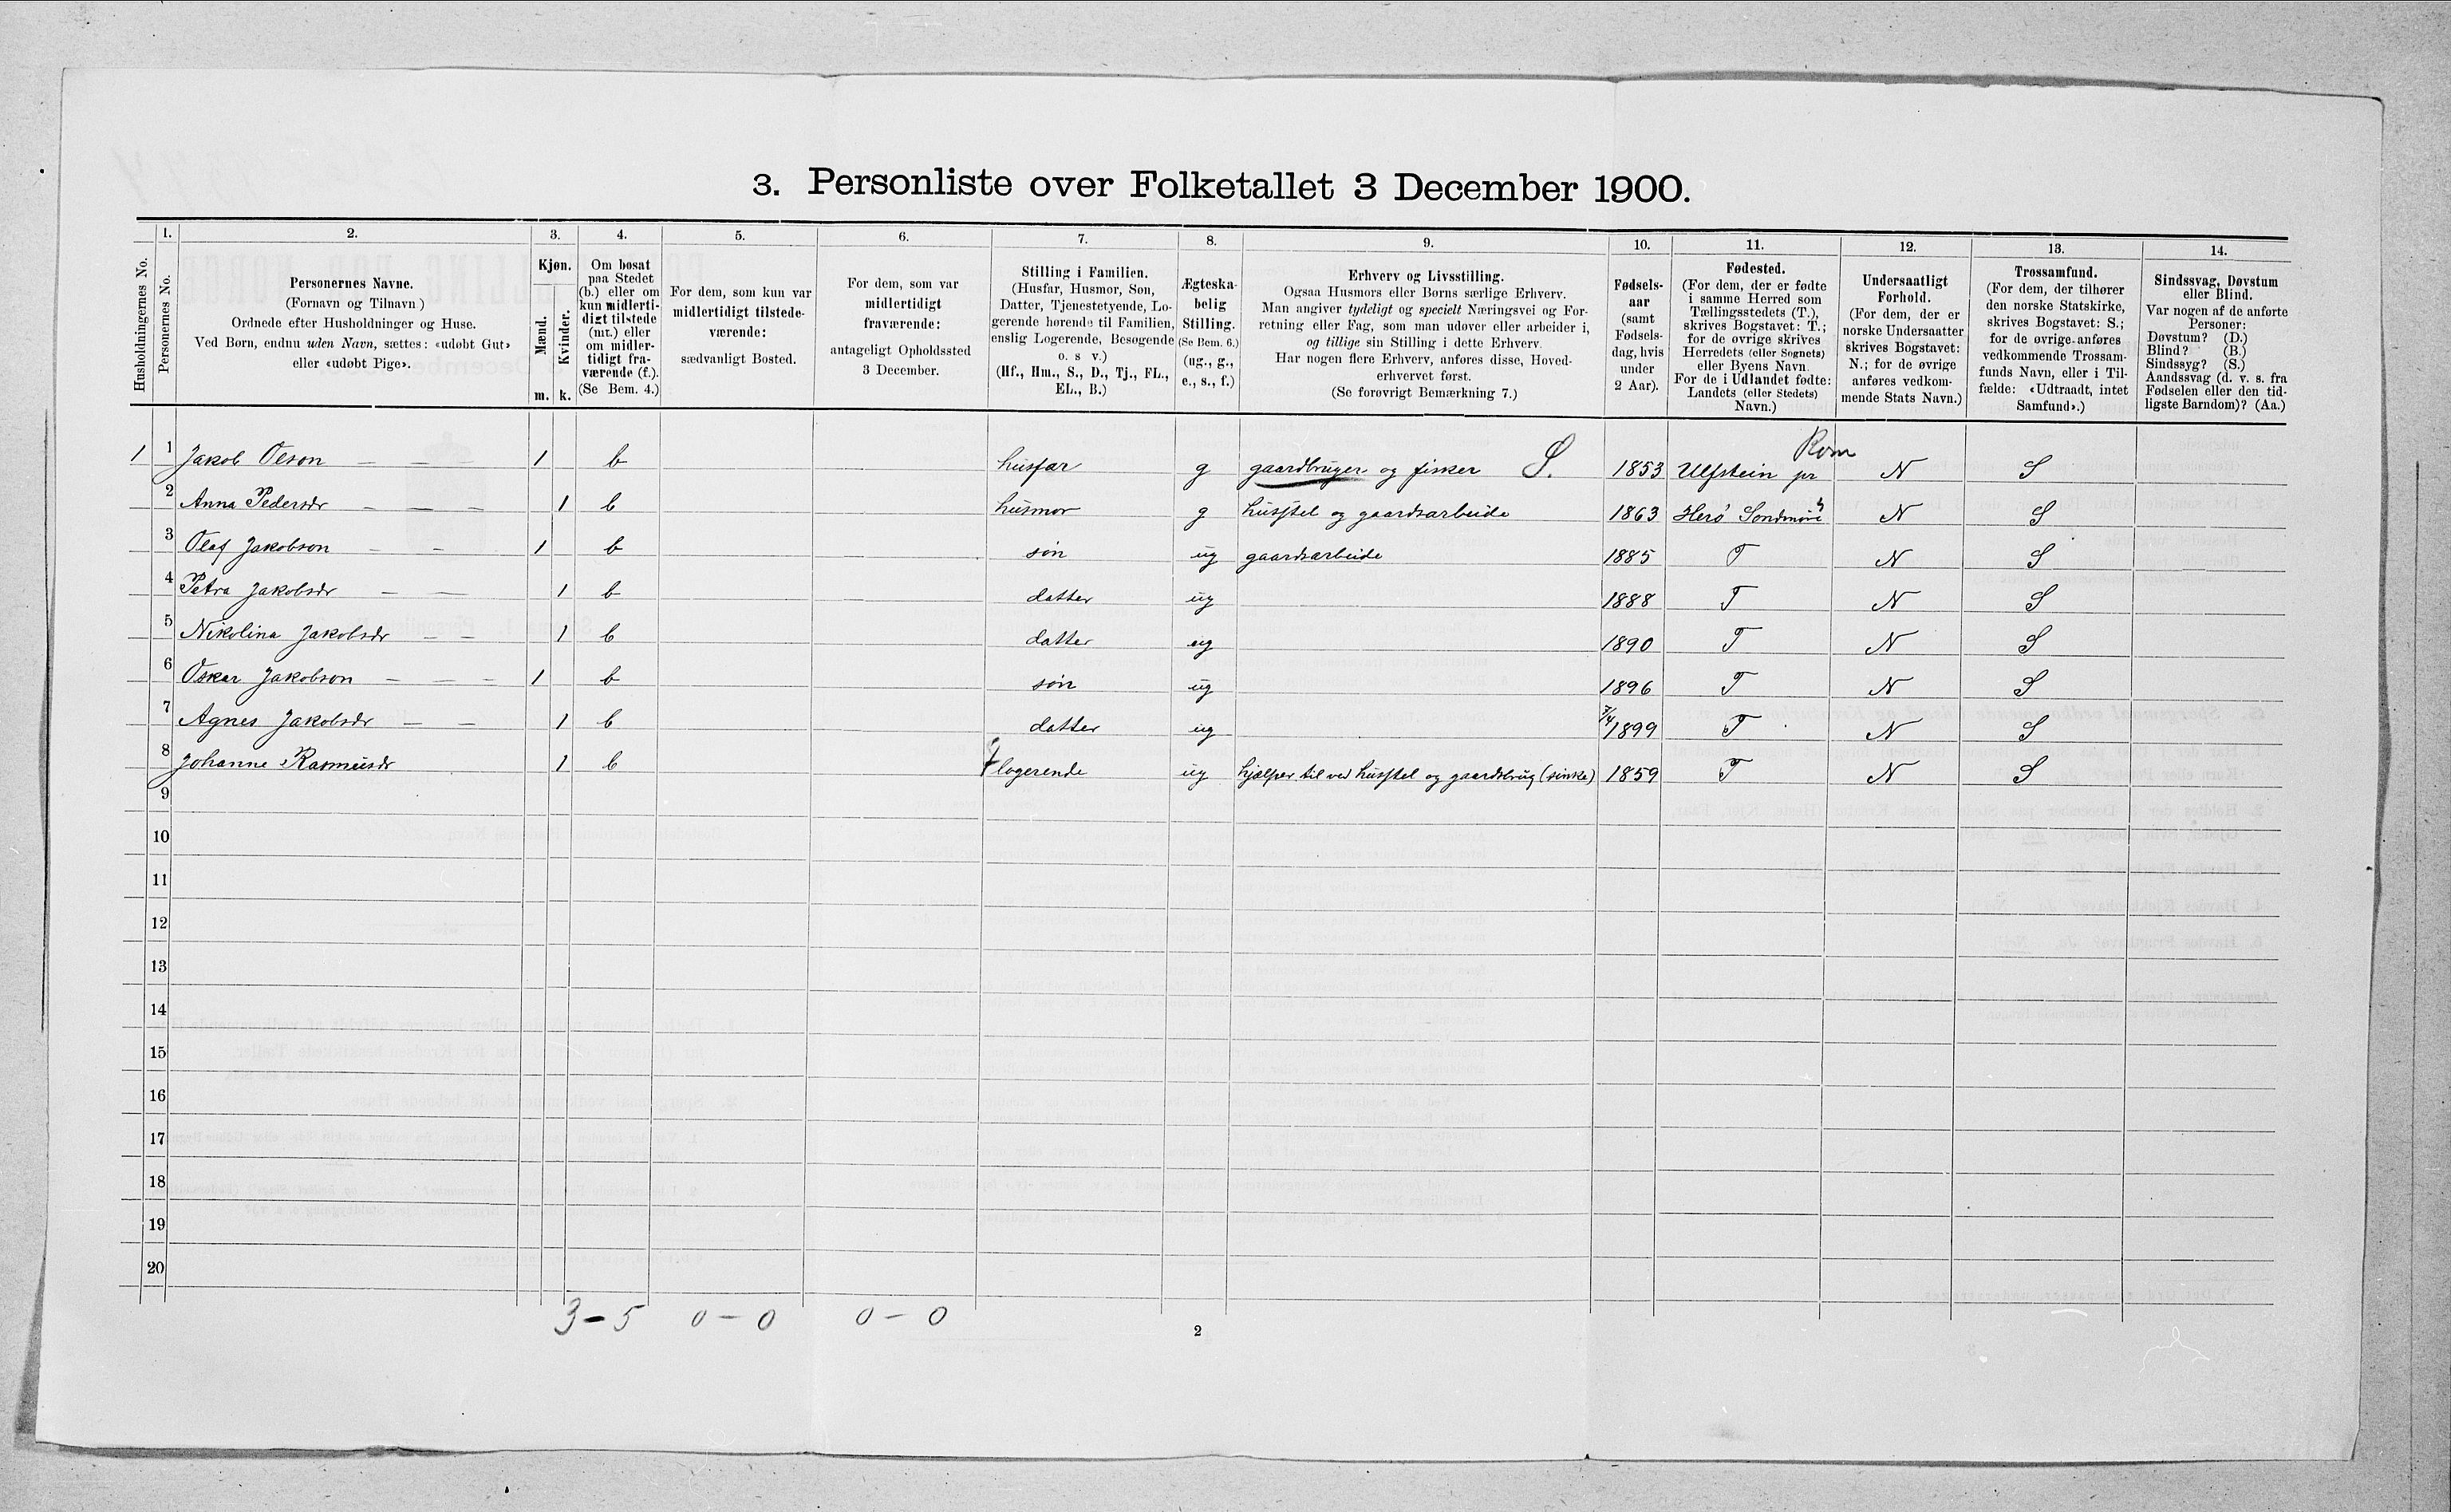 3. Personliste over Folketallet 3 December 1900.
1. 2. 3. 4. 5. 6. 7. 8. 9. 10. 11. 12. 13. 14.
Husholdningernes No.
Personernes No.
Personernes Navne.
(Fornavn og Tilnavn.)
Ordnede efter Husholdninger og Huse.
Ved Børn, endnu uden Navn, sættes: «udøbt Gut»
eller «udøbt Pige».
Kjøn.
Mænd.
Kvinder.
m. k.
Om bosat
paa Stedet
(b.) eller om
kun midlerti-
digt tilstede
(mt.) eller
om midler-
tidigt fra-
værende (f.).
(Se Bem. 4.)
For dem, som kun var
midlertidigt tilstede-
værende:
sædvanligt Bosted.
For dem, som var
midlertidigt
fraværende:
antageligt Opholdssted
3 December.
Stilling i Familien.
(Husfar, Husmor, Søn,
Datter, Tjenestetyende, Lo-
gerende hørende til Familien,
enslig Logerende, Besøgende
o. s v.)
(Hf., Hm., S., D., Tj., FL.,
EL., B.)
Ægteska-
belig
Stilling.
(Se Bem. 6.)
(ug., g.,
e., s., f.)
Erhverv og Livsstilling.
Ogsaa Husmors eller Børns særlige Erhverv.
Man angiver tydeligt og specielt Næringsvei og For-
retning eller Fag, som man udøver eller arbeider i,
og tillige sin Stilling i dette Erhverv.
Har nogen flere Erhverv, anføres disse, Hoved-
erhvervet først.
(Se forøvrigt Bemærkning 7.)
Fødsels-
aar
(samt
Fødsels-
dag, hvis
under
2 Aar).
Fødested.
(For dem, der er fødte
i samme Herred som
Tællingsstedets (T.),
skrives Bogstavet: T.;
for de øvrige skrives
Herredets (eller Sognets)
eller Byens Navn.
For de i Udlandet fødte:
Landets (eller Stedets)
Navn.)
Undersaatligt
Forhold.
(For dem, der er
norske Undersaatter
skrives Bogstavet:
N.; for de øvrige
anføres vedkom-
mende Stats Navn.)
Trossamfund.
(For dem, der tilhører
den norske Statskirke,
skrives Bogstavet: S.;
for de øvrige anføres
vedkommende Trossam-
funds Navn, eller i Til-
fælde: «Udtraadt, intet
Samfund».)
Sindssvag, Døvstum
eller Blind.
Var nogen af de anførte
Personer:
Døvstum? (D.)
Blind? (B.)
Sindssyg? (S.)
Aandssvag (d. v. s. fra
Fødselen eller den tid-
ligste Barndom)? (Aa.)
1 1 Jakob Olson – – – 1 b husfar g gaardbruger og fisker S. 1853 Ulfstein pr Rom N S
2 Anna Pedersdr – – – 1 b husmor g husstel og gaardsarbeide 1863 Herø Søndmøre N S
3 Olaf Jakobson – – 1 b søn ug gaardsarbeide 1885 T N S
4 Petra Jakobsdr – – 1 b datter ug 1888 T N S
5 Nikolina Jakobsdr – – 1 b datter ug 1890 T N S
6 Oskar Jakobson – – – 1 b søn ug 1896 T N S
7 Agnes Jakobsdr – – 1 b datter ug 7/4 1899 T N S
8 Johanne Rasmusdr 1 b logerende ug hjælper til ved husstel og gaardsbrug (sinke) 1859 T N S
9
10
11
12
13
14
15
16
17
18
19
20
3 – 5 0 – 0 0 – 0
2